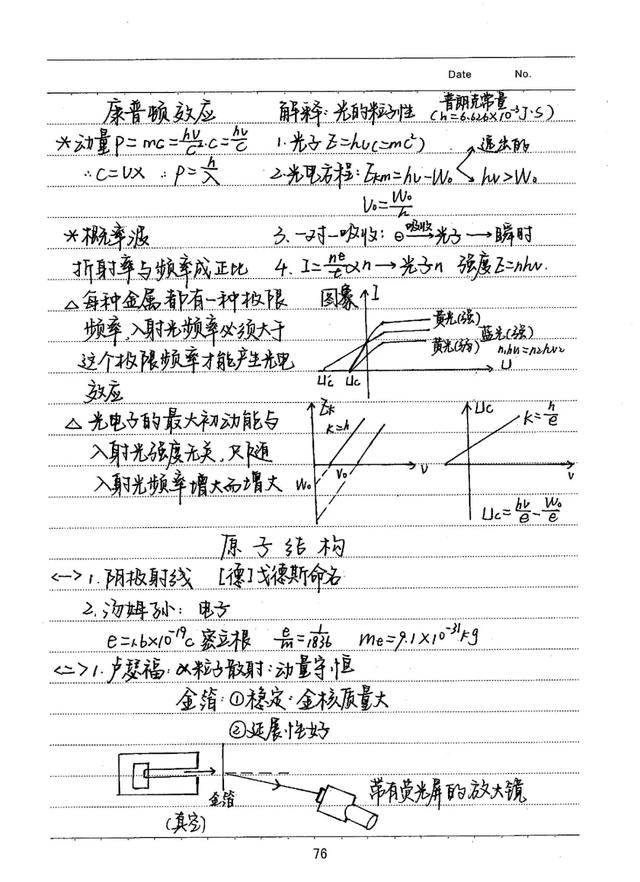 Date No.
康普顿效应 解释:光的粒子性 普朗克常量 (h=6.626×10⁻³J·S)
*动量P=mc=hν/c²·c=hν/c 1.光子E=hν(=mc²) 逸出的
∴c=νλ ∴P=h/λ 2.光电方程:Ekm=hν-W₀ hν>W₀
ν₀=W₀/h
*概率波 3.一对一吸收:e 吸收→光子→瞬时
折射率与频率成正比 4.I=ne/t∝n→光子n 强度E=nhν.
△每种金属都有一种极限 图象 I
频率,入射光频率必须大于 黄光(强) 蓝光(强)
这个极限频率才能产生光电 黄光(弱) n₁hν₁=n₂hν₂
效应 Uc′ Uc U
△光电子的最大初动能与 Ek K=h Uc K=h/e
入射光强度无关,只随 ν₀ ν ν
入射光频率增大而增大 W₀ Uc=hν/e-W₀/e
原子结构
<一>1.阴极射线 [德]戈德斯命名
2.汤姆孙:电子
e=1.6×10⁻¹⁹C 密立根 e/m=1/1836 me=9.1×10⁻³¹kg
<二>1.卢瑟福:α粒子散射:动量守恒
金箔:①稳定·金核质量大
②延展性好
金箔 带有荧光屏的放大镜
(真空)
76